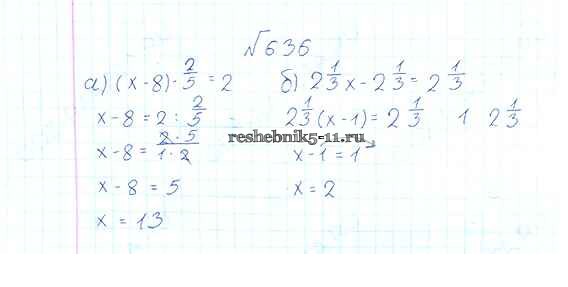 №636
а) (x-8)·2/5 = 2
x-8 = 2 : 2/5
x-8 = 2·5/1·2
x-8 = 5
x = 13
б) 2 1/3 x - 2 1/3 = 2 1/3
2 1/3 (x-1) = 2 1/3 1 2 1/3
x-1 = 1
x = 2
reshebnik5-11.ru